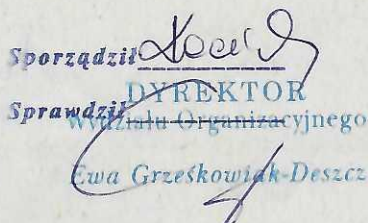 Sporządził
Sprawdził
DYREKTOR
Wydziału Organizacyjnego
Ewa Grześkowiak-Deszcz